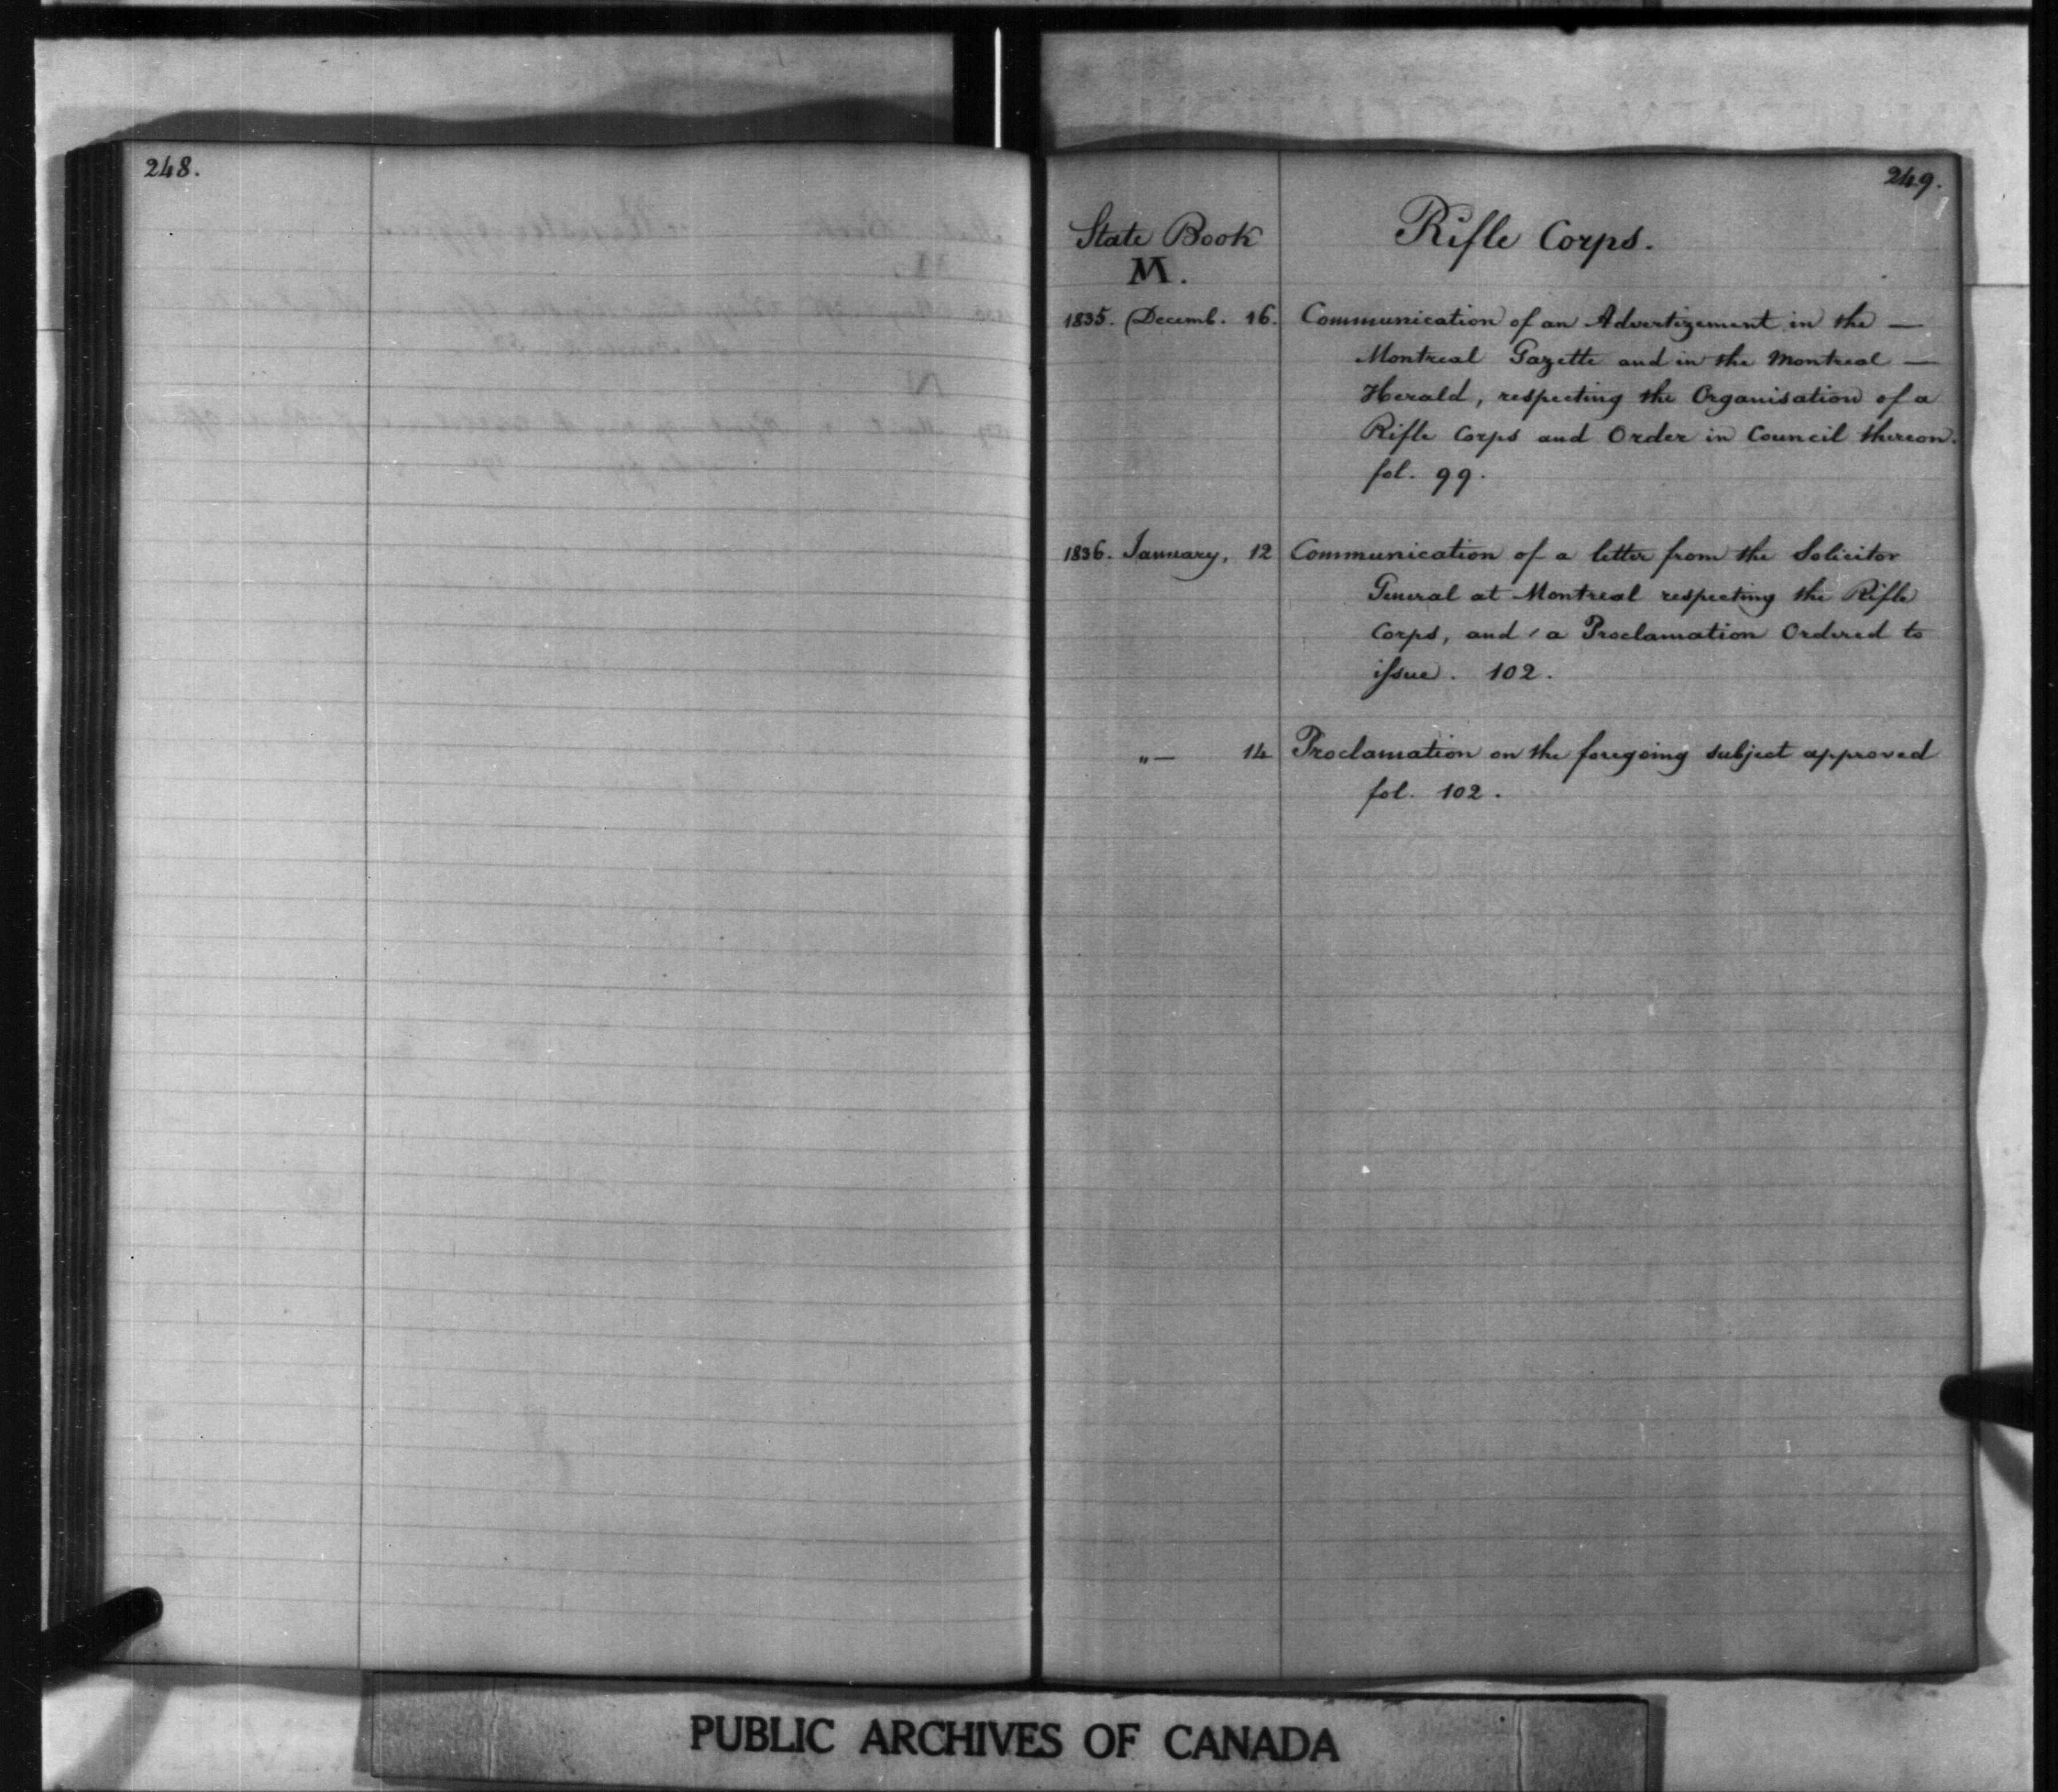 248.
249.
State Book
M.
Rifle Corps.
1835. Decemb. 16. Communication of an Advertizement in the —
Montreal Gazette and in the Montreal —
Herald, respecting the Organisation of a
Rifle Corps and Order in Council thereon.
fol. 99.
1836. January, 12 Communication of a letter from the Solicitor
General at Montreal respecting the Rifle
Corps, and a Proclamation Ordered to
issue. 102.
„— 14 Proclamation on the foregoing subject approved
fol. 102.
PUBLIC ARCHIVES OF CANADA